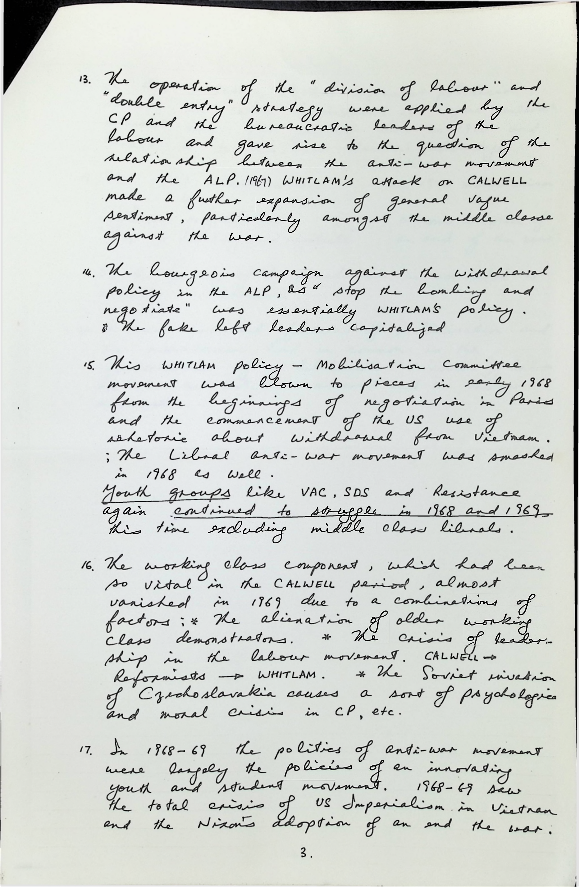 13. The operation of the "division of labour" and
"double entry" strategy were applied by the
CP and the bureaucratic leaders of the
labour and gave rise to the question of the
relationship between the anti-war movement
and the ALP. (1967) WHITLAM's attack on CALWELL
made a further expansion of general vague
sentiment, particularly amongst the middle classe
against the war.
14. The bourgeois campaign against the withdrawal
policy in the ALP, as "stop the bombing and
negotiate" was essentially WHITLAM'S policy.
* The fake left leaders capitalized
15. This WHITLAM policy - Mobilisation Committee
movement was blown to pieces in early 1968
from the beginnings of negotiation in Paris
and the commencement of the US use of
rhetoric about withdrawal from Vietnam.
; The Liberal anti-war movement was smashed
in 1968 as well.
Youth groups like VAC, SDS and Resistance
again continued to struggle in 1968 and 1969
this time excluding middle class liberals.
16. The working class component, which had been
so vital in the CALWELL period, almost
vanished in 1969 due to a combinations of
factors ; * The alienation of older working
class demonstrators. * The crisis of leader-
ship in the labour movement. CALWELL →
Reformists → WHITLAM. * The Soviet invasion
of Czechoslavakia causes a sort of psychologica
and moral crisis in CP, etc.
17. In 1968-69 the politics of anti-war movement
were largely the policies of an innovating
youth and student movement. 1968-69 saw
the total crisis of US Imperialism in Vietnam
and the Nixon's adoption of an end the war.
3.